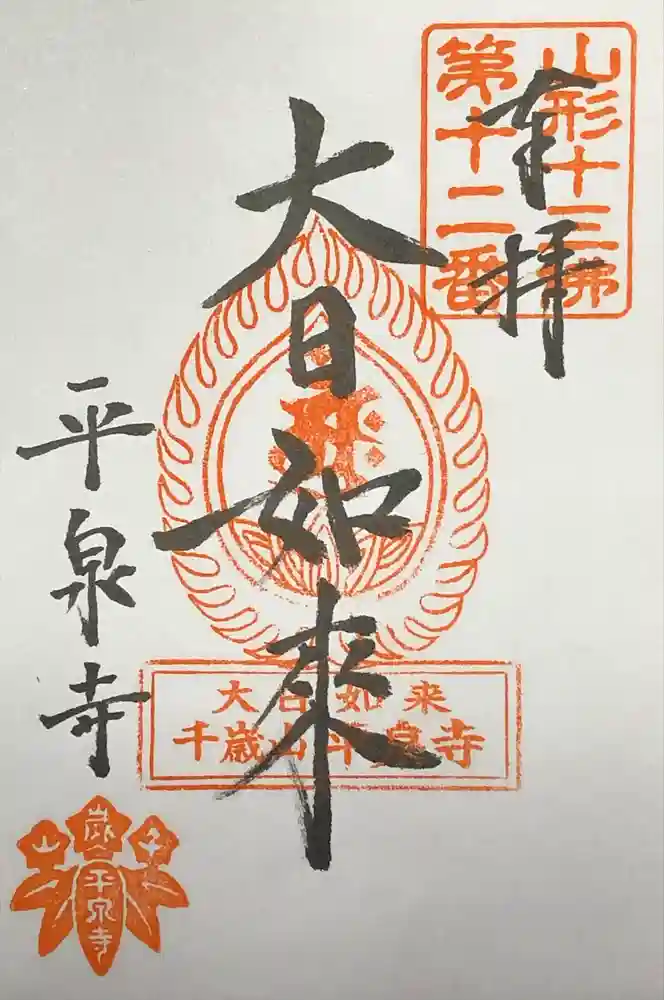 山形十三佛
第十二番
奉拝
大日如来
平泉寺
大日如来
千歳山平泉寺
千歳山
平泉寺